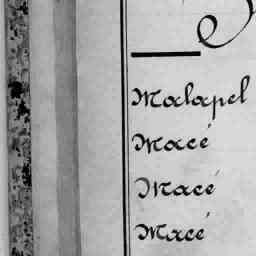 Malapel
Macé
Macé
Macé